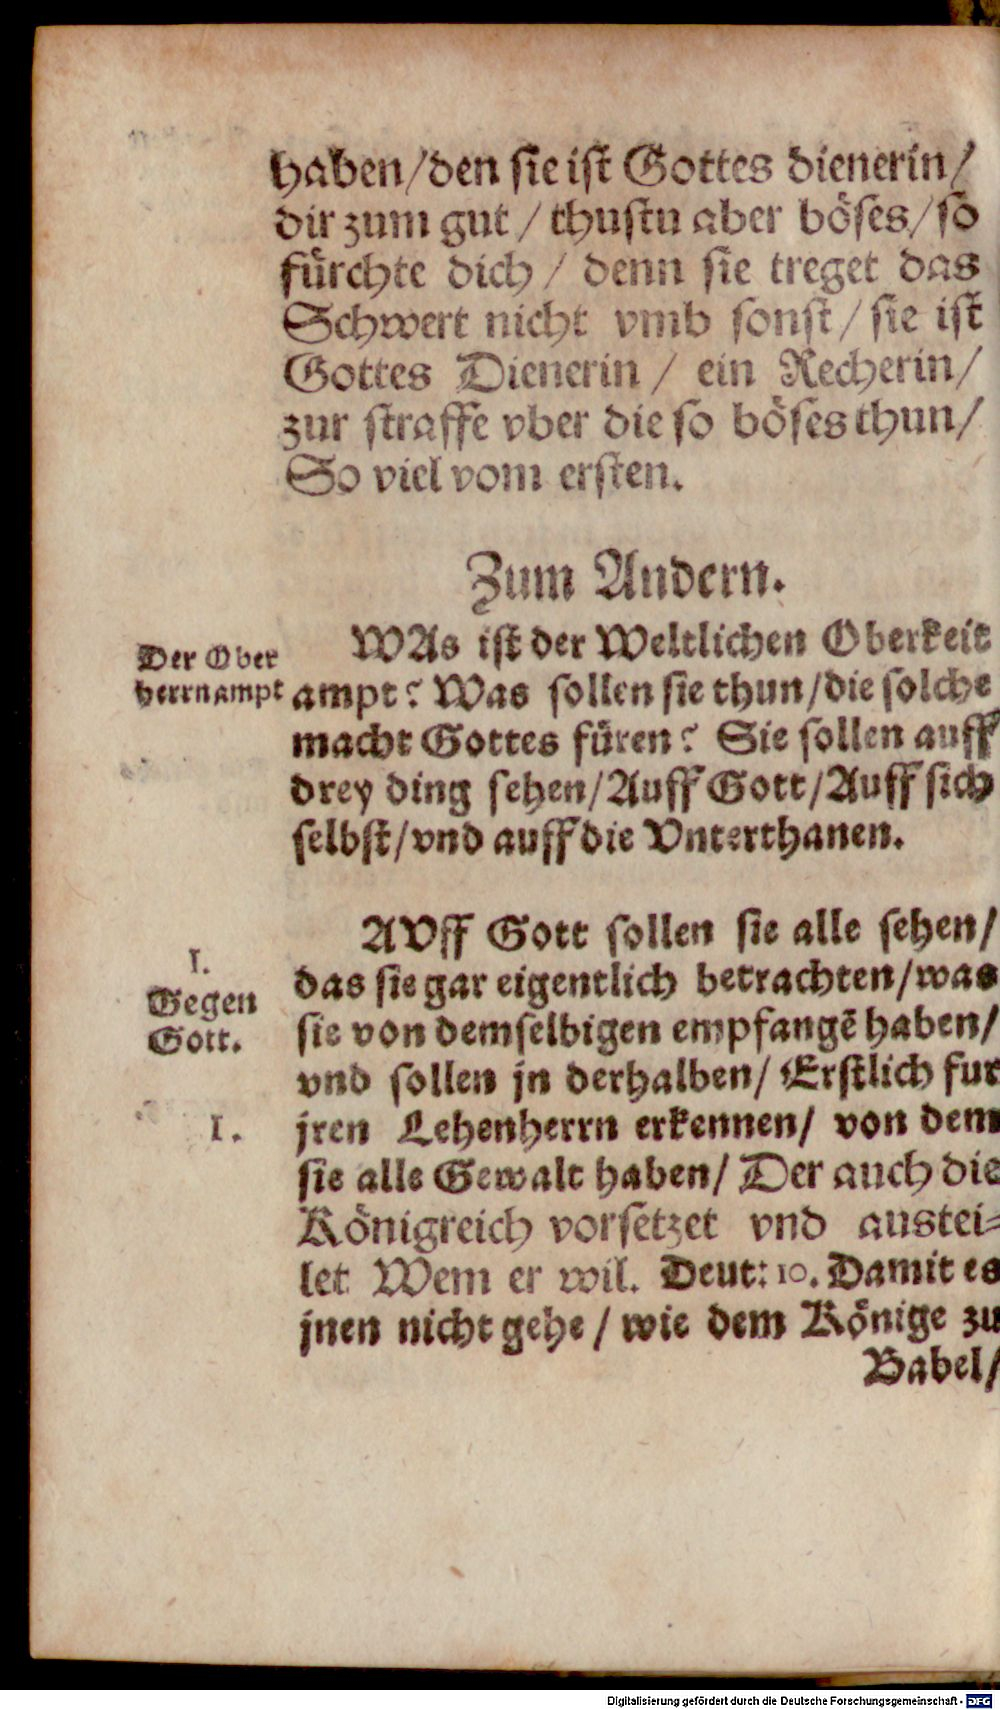 haben/den sie ist Gottes dienerin/
dir zum gut / thustu aber böses/so
fürchte dich / denn sie treget das
Schwert nicht vmb sonst / sie ist
Gottes Dienerin / ein Recherin/
zur straffe vber die so böses thun/
So viel vom ersten.
Zum Andern.
Der Ober
herrn ampt
WAs ist der Weltlichen Oberkeit
ampt? Was sollen sie thun/die solche
macht Gottes füren? Sie sollen auff
drey ding sehen/Auff Gott/Auff sich
selbst/vnd auff die Vnterthanen.
I.
Gegen
Gott.
I.
AVff Gott sollen sie alle sehen/
das sie gar eigentlich betrachten/was
sie von demselbigen empfangē haben/
vnd sollen jn derhalben/ Erstlich fur
jren Lehenherrn erkennen/ von dem
sie alle Gewalt haben/ Der auch die
Königreich vorsetzet vnd austei-
let Wem er wil. Deut: 10. Damit es
jnen nicht gehe / wie dem Könige zu
Babel/
Digitalisierung gefördert durch die Deutsche Forschungsgemeinschaft - DFG